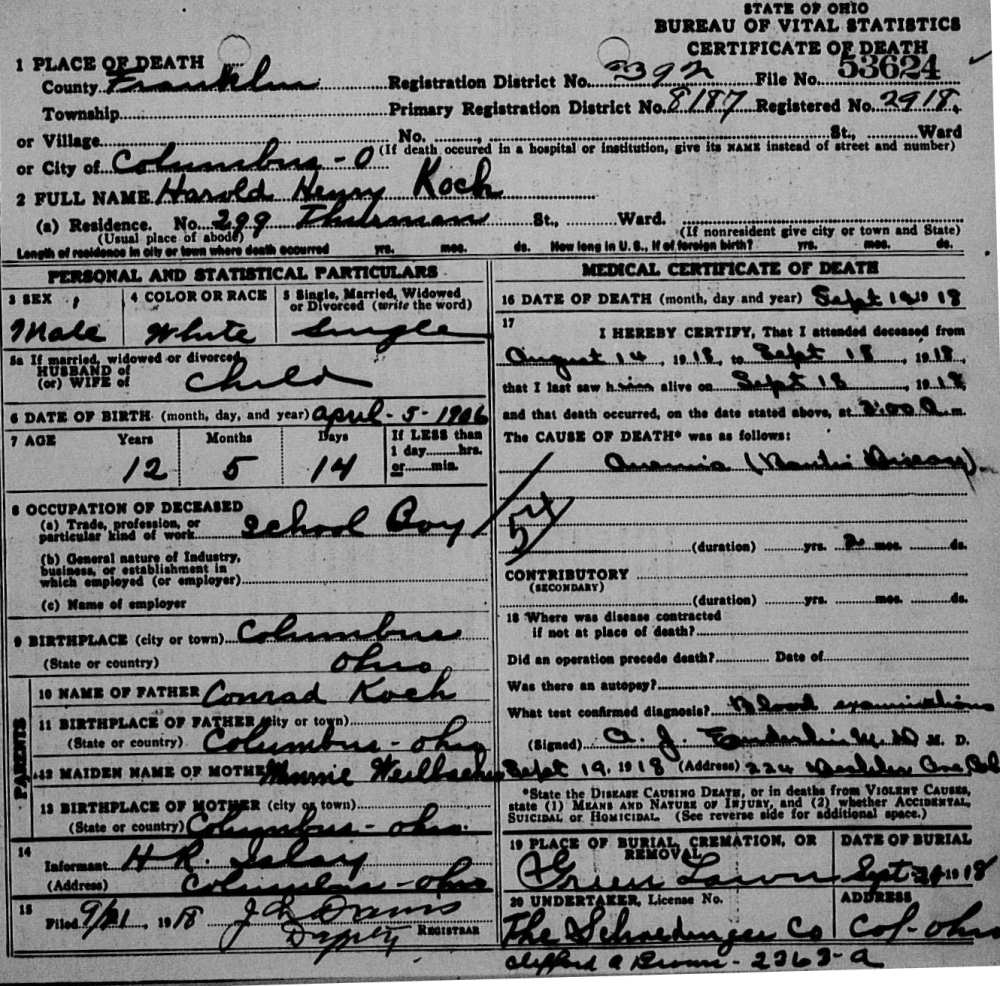 STATE OF OHIO
BUREAU OF VITAL STATISTICS
CERTIFICATE OF DEATH
1 PLACE OF DEATH
County Franklin Registration District No. 392 File No. 53624
Township Primary Registration District No. 8187 Registered No. 2918
or Village No. , St., Ward
or City of Columbus - O (If death occured in a hospital or institution, give its NAME instead of street and number)
2 FULL NAME Harold Henry Koch
(a) Residence. No. 299 Thurman St., Ward.
(Usual place of abode) (If nonresident give city or town and State)
Length of residence in city or town where death occurred yrs. mos. ds. How long in U. S., if of foreign birth? yrs. mos. ds.
PERSONAL AND STATISTICAL PARTICULARS
3 SEX
Male
4 COLOR OR RACE
White
5 Single, Married, Widowed
or Divorced (write the word)
Single
5a If married, widowed or divorced
HUSBAND of
(or) WIFE of
Child
6 DATE OF BIRTH (month, day, and year) April - 5 - 1906
7 AGE Years Months Days If LESS than
1 day hrs.
or min.
12 5 14
8 OCCUPATION OF DECEASED
(a) Trade, profession, or
particular kind of work School Boy
(b) General nature of Industry,
business, or establishment in
which employed (or employer)
(c) Name of employer
9 BIRTHPLACE (city or town) Columbus
(State or country) Ohio
PARENTS
10 NAME OF FATHER Conrad Koch
11 BIRTHPLACE OF FATHER (city or town)
(State or country) Columbus - Ohio
12 MAIDEN NAME OF MOTHER Minnie
13 BIRTHPLACE OF MOTHER (city or town)
(State or country) Columbus - Ohio.
14
Informant H. R.
(Address) Columbus - Ohio
15
Filed 9/21, 1918 Davis
Deputy REGISTRAR
MEDICAL CERTIFICATE OF DEATH
16 DATE OF DEATH (month, day and year) Sept 19 1918
17
I HEREBY CERTIFY, That I attended deceased from
August 14, 1918, to Sept 18, 1918,
that I last saw him alive on Sept 18, 1918
and that death occurred, on the date stated above, at m.
The CAUSE OF DEATH* was as follows:
Anemia
54
(duration) yrs. 2 mos. ds.
CONTRIBUTORY
(SECONDARY)
(duration) yrs. mos. ds.
18 Where was disease contracted
if not at place of death?
Did an operation precede death? Date of
Was there an autopsy?
What test confirmed diagnosis? Blood examinations
(Signed) A. J. M. D. M. D.
Sept 19. 1918 (Address) 224
*State the DISEASE CAUSING DEATH, or in deaths from VIOLENT CAUSES,
state (1) MEANS AND NATURE OF INJURY, and (2) whether ACCIDENTAL,
SUICIDAL or HOMICIDAL. (See reverse side for additional space.)
19 PLACE OF BURIAL, CREMATION, OR
REMOVAL
Green Lawn
DATE OF BURIAL
Sept 1918
20 UNDERTAKER, License No.
The Schoedinger Co
ADDRESS
Col - Ohio
Clifford A Brown - 2363-A